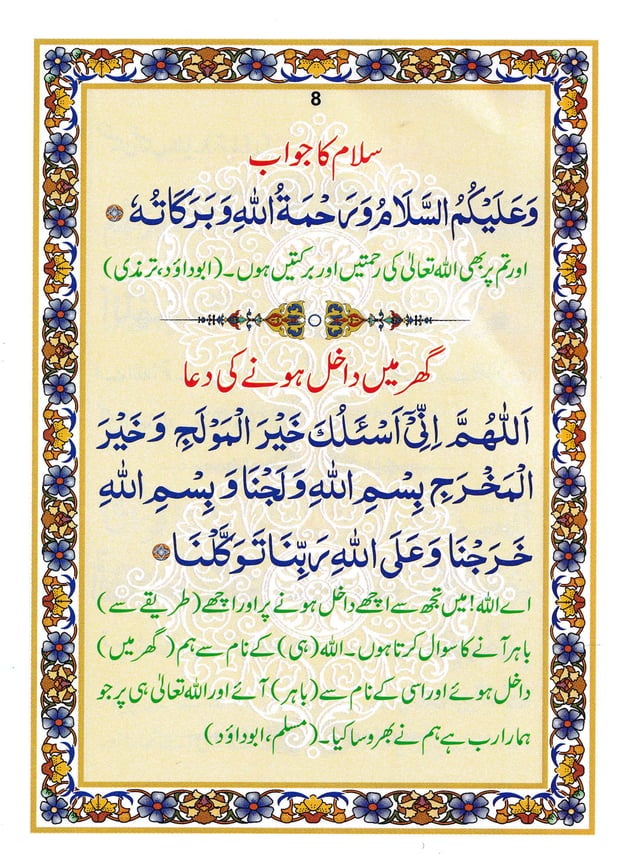 8
سلام کا جواب
وَعَلَيْكُمُ السَّلَامُ وَرَحْمَةُ اللهِ وَبَرَكَاتُهٗ
اور تم پر بھی اللہ تعالیٰ کی رحمتیں اور برکتیں ہوں۔ (ابوداؤد، ترمذی)
گھر میں داخل ہونے کی دعا
اَللّٰهُمَّ اِنِّیْٓ اَسْئَلُكَ خَيْرَ الْمَوْلَجِ وَخَيْرَ
الْمَخْرَجِ بِسْمِ اللهِ وَلَجْنَا وَ بِسْمِ اللهِ
خَرَجْنَا وَعَلَى اللهِ رَبِّنَا تَوَكَّلْنَا
اے اللہ! میں تجھ سے اچھے داخل ہونے پر اور اچھے (طریقے سے)
باہر آنے کا سوال کرتا ہوں۔ اللہ (ہی) کے نام سے ہم (گھر میں)
داخل ہوئے اور اسی کے نام سے (باہر) آئے اور اللہ تعالیٰ ہی پر جو
ہمارا رب ہے ہم نے بھروسا کیا۔ (مسلم، ابوداؤد)